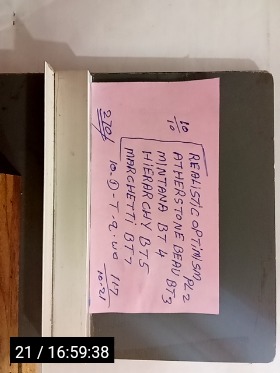 10/10
REALISTIC OPTIMISM PL 2
ATHERSTONE BEAU BT3
MINTANA BT 4
HIERARCHY BT5
MARCHETTI BT7
21 / 16:59:38